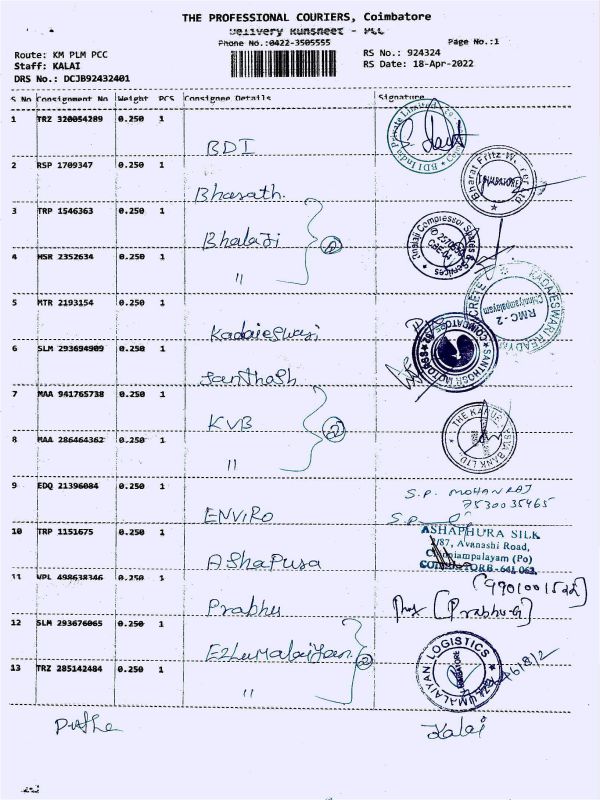 THE PROFESSIONAL COURIERS, Coimbatore
Delivery Runsheet - PCC
Phone No.:0422-3505555
Page No.:1
Route: KM PLM PCC
RS No.: 924324
Staff: KALAI
RS Date: 18-Apr-2022
DRS No.: DCJB92432401
S No Consignment No Weight PCS Consignee Details Signature
1 TRZ 320054289 0.250 1
BDI
2 RSP 1709347 0.250 1
Bharath
3 TRP 1546363 0.250 1
Bhalaji
4 MSR 2352634 0.250 1
"
5 MTR 2193154 0.250 1
Kadaieswari
6 SLM 293694909 0.250 1
Santhosh
7 MAA 941765738 0.250 1
KVB
8 MAA 286464362 0.250 1
"
9 EDQ 21396084 0.250 1
S.P. MOHANRAJ
7530035465
ENVIRO
S.P.
10 TRP 1151675 0.250 1
ASHAPHURA SILK
2/87, Avanashi Road,
Chinniampalayam (Po)
COIMBATORE-641 062.
AShaPura
11 VPL 498638346 0.250 1
Prabhu
[Prabhu-G]
12 SLM 293676065 0.250 1
Ezhumalaiyan
13 TRZ 285142484 0.250 1
"
Kalai